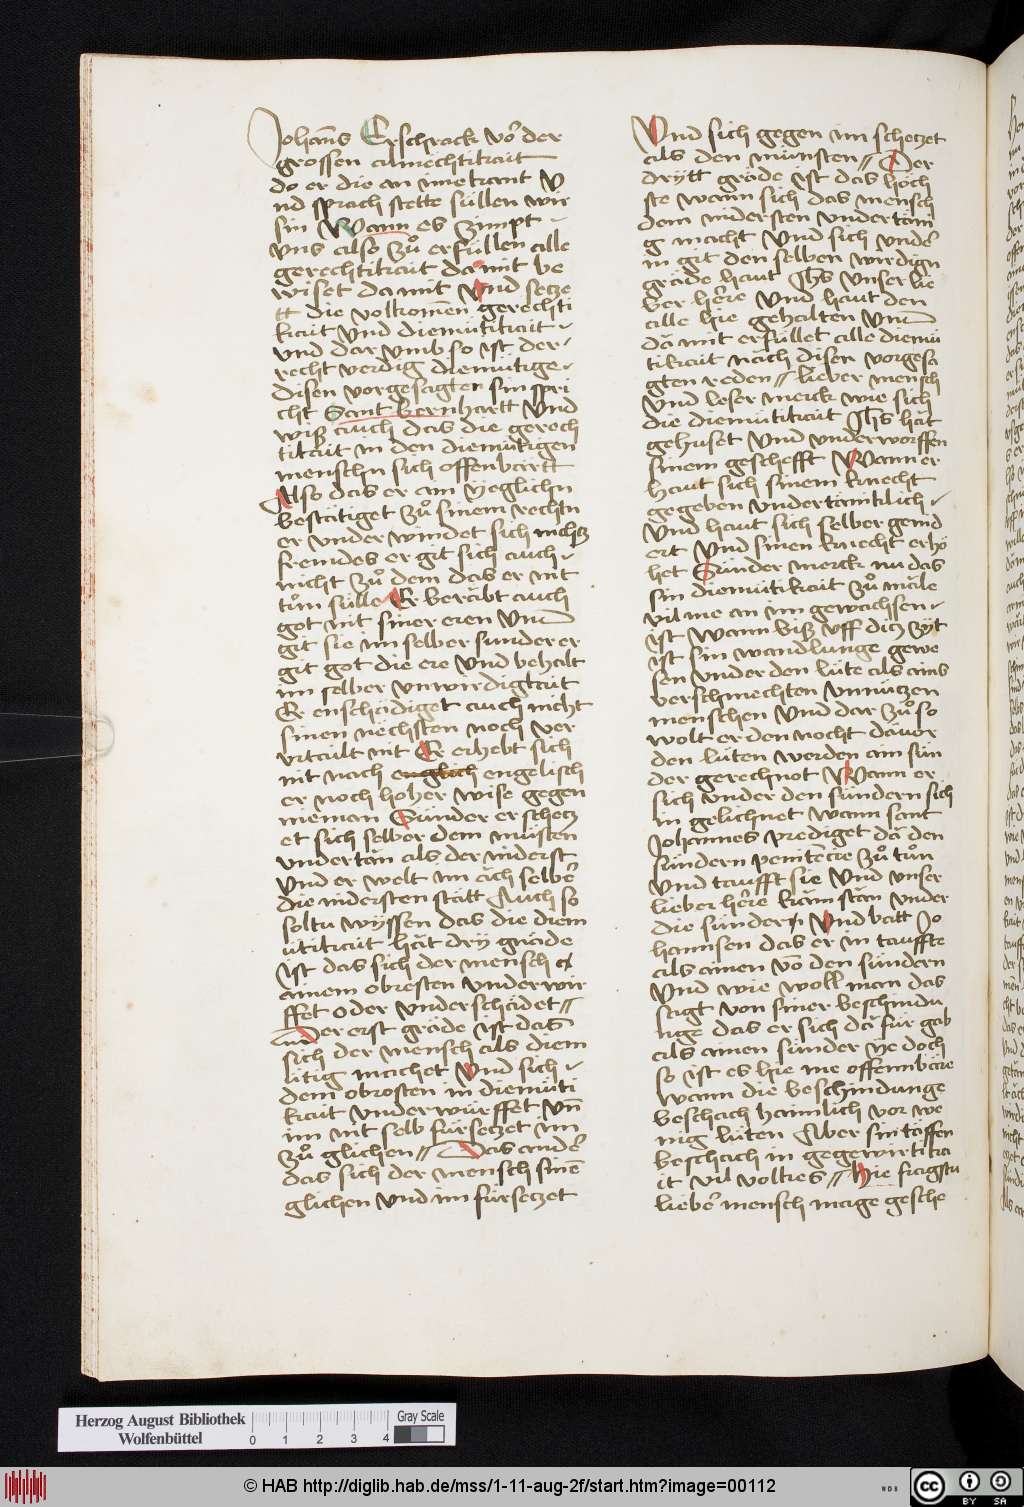 Johans Erschrack vō der
grossen almechtikait
do er die an ime kant V
nd sprach stette füllen wir
sin Wann es zimpt
vns also zuͦ erfüllen alle
gerechtikait da mit be
wiset da mit Vnd setze
tt die volkomen gerechti
kait Vnd diemütikait
vnd dar vmb so ist der
recht verdig diemütige
disen vorgesagten sin spri
cht Sant bernhartt Vnd
wiß auch das die gerech
tikait in den diemütigen
menschn sich offenbartt
Also das er am yeglichn
bestätiget zuͦ sinem rechtn
er vnder windet sich nichtz
fremdes er git sich auch
nicht zuͦ dem das er nit
tuͦn sülle Er berabt auch
got nit siner eren Vnd
git sie im selber sunder er
git got die ere Vnd behalt
im selber vnwirdigkait
Er enschediget auch nicht
sinen nechsten noch ver
vrtailt nit Er erhebt sich
nit nach englisch engelisch
er noch hoher wise gegen
nieman Sünder er schecz
et sich selber dem minsten
vndertan als der niderst
Vnd er welt im ach selber
die nidersten statt Auch so
soltu wyssen das die diem
ütikait hat dry grade
ist das sich der mensch
ainem obresten vnderwir
ffet oder vnderschadet //
Der erst grade ist das
sich der mensch als diem
ütig machet Vnd sich
dem obrosten in diemüti
kait vnderwürffet vn̄
im nit selb fürsetzet im
zuͦ glichen // Das ander
das sich der mensch sinē
glichen Vnd im fürsetzet
Vnd sich gegen im schetzet
als den minsten // Der
drytt grode ist das höch
ste wann sich das mensch
dem nidersten vndertäni
g macht Vnd sich vnder
in git den selben wirdign
grade haut Jhs Vnser lie
ber here Vnd haut den
alle hie gehalten Vnd
da mit erfüllet alle diemü
tikait nach disen vorgesa
gten reden // lieber mensch
Vnd leser merck wie sich
die diemütikait Jhs hat
gehuset Vnd vnderworffen
sinem geschefft Wann er
haut sich sinem knecht
gegeben vndertanklich
Vnd haut sich selber genid
ert Vnd sinen knecht erhö
het Sünder merck nu das
sin diemütikait zuͦ male
vil me an im gewachsen
ist Wann biß vff dicz zyt
ist sin wandlunge gewe
sen vnder den lüte als ains
verschmechten vnnützen
menschen Vnd dar zuͦ so
wolt er den nocht davor
den lüten werden ain sün
der gerechnot Wann er
sich vnder den sündern sich
in gelichnet wann sant
Johannes prediget da den
sündern penitencie zuͦ tuͦn
Vnd taufft sie Vnd vnser
lieber here kam stan vnder
die sünder Vnd batt Jo
hannsen das er in tauffte
als ainen vō den sündern
Vnd wie woll man das
sagt von siner beschindu
nge das er sich da für gab
als ainen sünder ye doch
so ist es hie me offennbare
Wann die beschindunge
beschach haimlich vor we
nig lüten Aber sin töffen
beschach in gegewirtika
it vil volkes // Hie fragstu
lieber mensch mage gesche
Herzog August Bibliothek
Wolfenbüttel
0 1 2 3 4
Gray Scale
© HAB http://diglib.hab.de/mss/1-11-aug-2f/start.htm?image=00112
WDB
cc BY SA